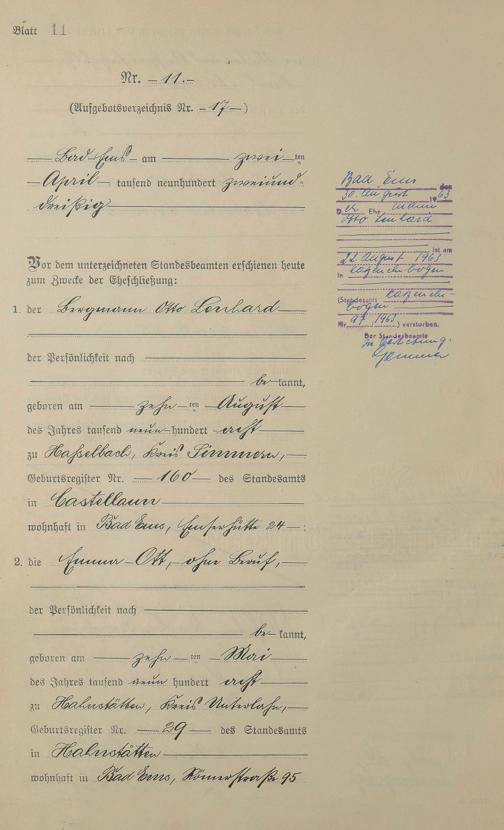 Blatt 11
Nr. 11.
(Aufgebotsverzeichnis Nr. 17)
Bad Ems am zwei ten
April tausend neunhundert zweiund-
dreißig
Vor dem unterzeichneten Standesbeamten erschienen heute
zum Zwecke der Eheschließung:
1. der Bergmann Otto Lenhard
der Persönlichkeit nach
be kannt,
geboren am zehn ten August
des Jahres tausend neun hundert acht
zu Hasselbach, Kreis Simmern,
Geburtsregister Nr. 160 des Standesamts
in Castellaun
wohnhaft in Bad Ems, Emserhütte 24 ;
2. die Emma Ott, ohne Beruf,
der Persönlichkeit nach
be kannt,
geboren am zehn ten Mai
des Jahres tausend neun hundert acht
zu Hahnstätten, Kreis Unterlahn,
Geburtsregister Nr. 29 des Standesamts
in Hahnstätten
wohnhaft in Bad Ems, Römerstraße 95
Bad Ems den
30. August 1963
D er Ehemann
Otto Lenhard
ist am
22. August 1963
in Katzenelnbogen
(Standesamt Katzeneln-
bogen
Nr. 1963) verstorben.
Der Standesbeamte
In Vertretung: